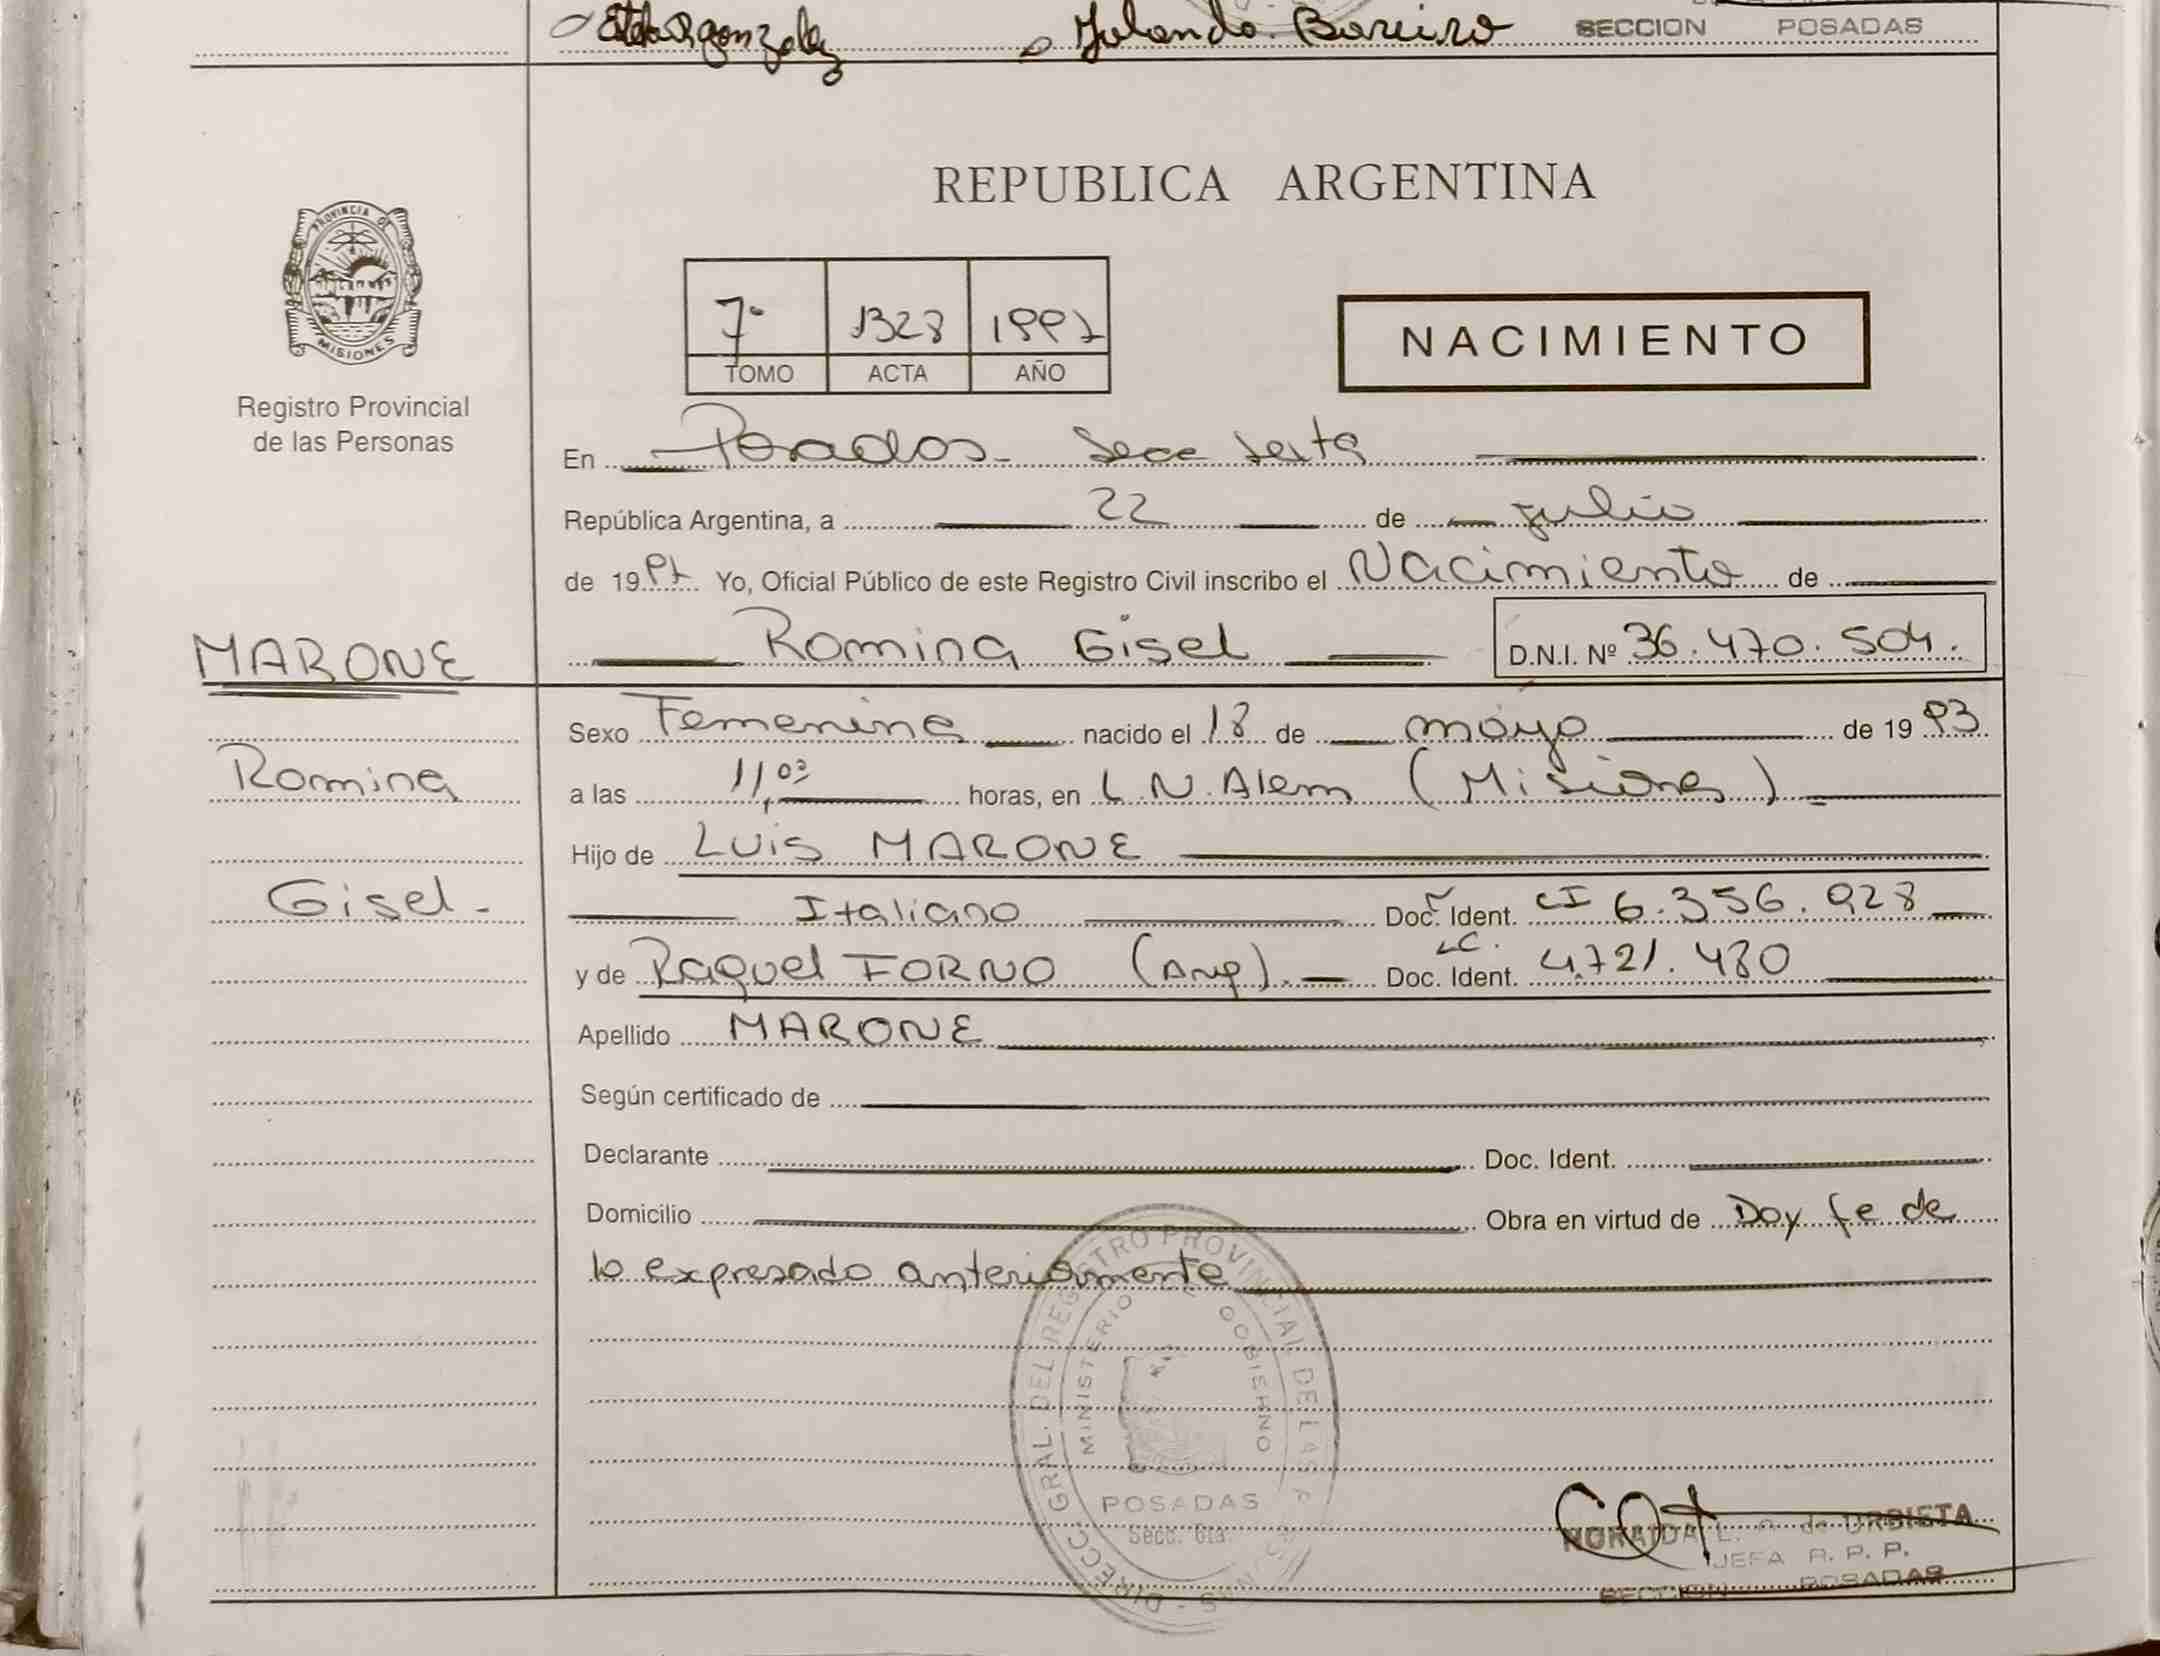 Yolanda Boreiro
SECCION POSADAS
PROVINCIA DE
MISIONES
Registro Provincial
de las Personas
REPUBLICA ARGENTINA
7º 1328 1997
TOMO ACTA AÑO
NACIMIENTO
En Posadas Secc Sexta
República Argentina, a 22 de julio
de 1997 Yo, Oficial Público de este Registro Civil inscribo el Nacimiento de
MARONE
Romina Gisel D.N.I. Nº 36.470.504.
Sexo Femenino nacido el 18 de mayo de 1993
Romina
a las 11,03 horas, en L.N. Alem (Misiones)
Hijo de Luis MARONE
Gisel-
Italiano Doc. Ident. CI 6.356.928
y de Raquel FORNO (Arg). Doc. Ident. LC. 4.721.480
Apellido MARONE
Según certificado de
Declarante Doc. Ident.
Domicilio Obra en virtud de Doy fe de
lo expresado anteriormente
DIRECC. GRAL. DEL REGISTRO PROVINCIAL DE LAS PERSONAS
MINISTERIO DE GOBIERNO
POSADAS
Secc. 6ta.
L. de URBIETA
JEFA R. P. P.
SECCION POSADAS